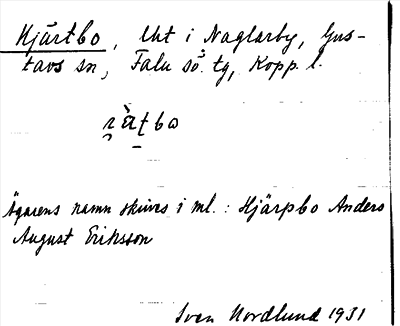 Hjärtbo, Uht i Naglarby, Gus-
tavs sn, Falu sö. tg, Kopp. l.
Ägarens namn skrives i ml. : Hjärpbo Anders
August Eriksson
Sven Nordlund 1931